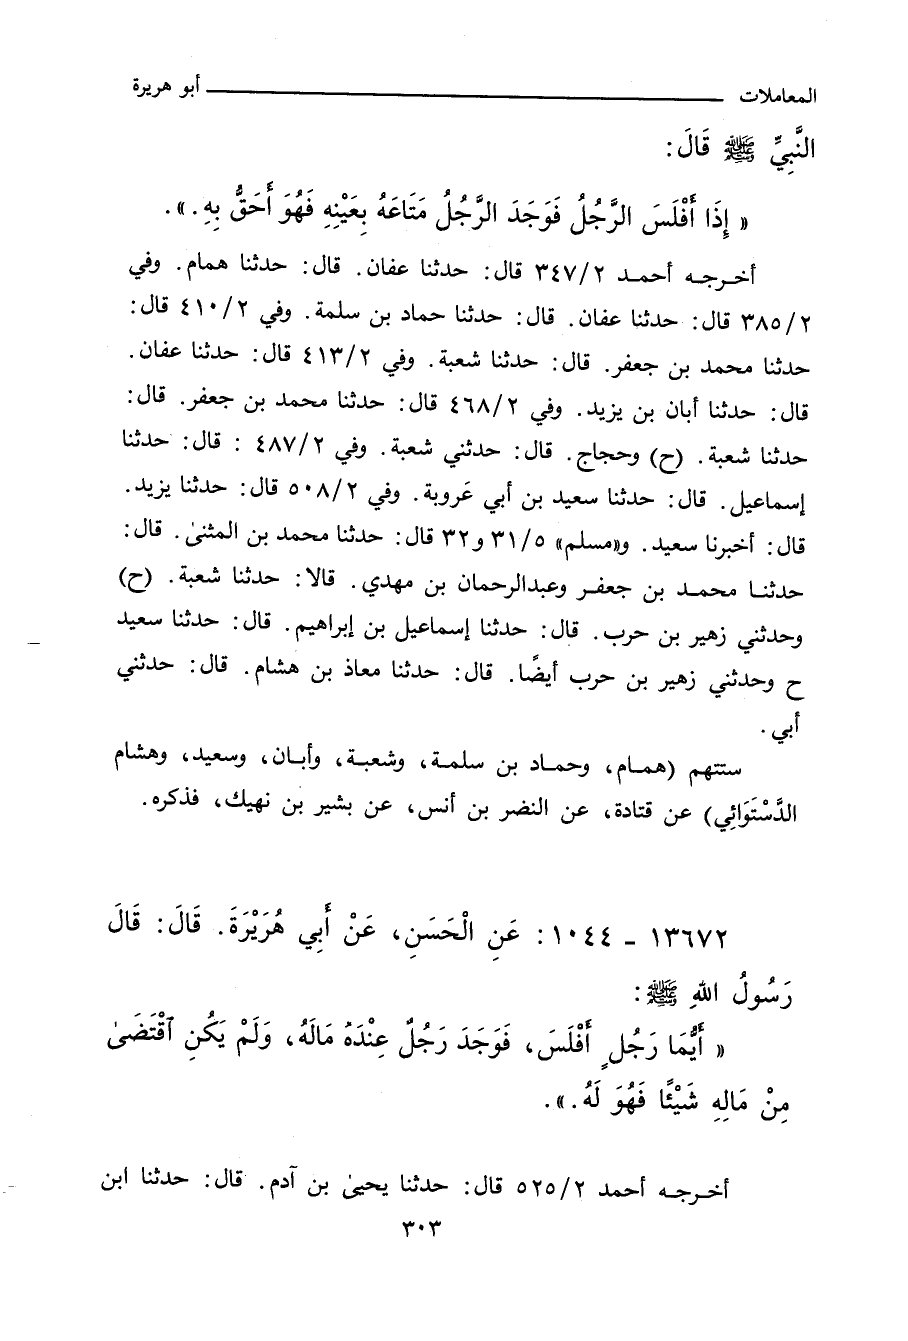 المعاملات ــــــــــــ أبو هريرة
النَّبِيِّ ﷺ قَالَ:
« إِذَا أَفْلَسَ الرَّجُلُ فَوَجَدَ الرَّجُلُ مَتَاعَهُ بِعَيْنِهِ فَهُوَ أَحَقُّ بِهِ. ».
أخرجه أحمد ٢/٣٤٧ قال: حدثنا عفان. قال: حدثنا همام. وفي
٢/٣٨٥ قال: حدثنا عفان. قال: حدثنا حماد بن سلمة. وفي ٢/٤١٠ قال:
حدثنا محمد بن جعفر. قال: حدثنا شعبة. وفي ٢/٤١٣ قال: حدثنا عفان.
قال: حدثنا أبان بن يزيد. وفي ٢/٤٦٨ قال: حدثنا محمد بن جعفر. قال:
حدثنا شعبة. (ح) وحجاج. قال: حدثني شعبة. وفي ٢/٤٨٧ : قال: حدثنا
إسماعيل. قال: حدثنا سعيد بن أبي عَروبة. وفي ٢/٥٠٨ قال: حدثنا يزيد.
قال: أخبرنا سعيد. و«مسلم» ٥/٣١ و٣٢ قال: حدثنا محمد بن المثنىٰ. قال:
حدثنا محمد بن جعفر وعبدالرحمان بن مهدي. قالا: حدثنا شعبة. (ح)
وحدثني زهير بن حرب. قال: حدثنا إسماعيل بن إبراهيم. قال: حدثنا سعيد
ح وحدثني زهير بن حرب أيضًا. قال: حدثنا معاذ بن هشام. قال: حدثني
أبي.
ستتهم (همام، وحماد بن سلمة، وشعبة، وأبان، وسعيد، وهشام
الدَّسْتَوَائِي) عن قتادة، عن النضر بن أنس، عن بشير بن نهيك، فذكره.
١٣٦٧٢ - ١٠٤٤: عَنِ الْحَسَنِ، عَنْ أَبِي هُرَيْرَةَ. قَالَ: قَالَ
رَسُولُ اللهِ ﷺ:
« أَيُّمَا رَجُلٍ أَفْلَسَ، فَوَجَدَ رَجُلٌ عِنْدَهُ مَالَهُ، وَلَمْ يَكُنِ ٱقْتَضَىٰ
مِنْ مَالِهِ شَيْئًا فَهُوَ لَهُ. ».
أخرجه أحمد ٢/٥٢٥ قال: حدثنا يحيىٰ بن آدم. قال: حدثنا ابن
٣٠٣